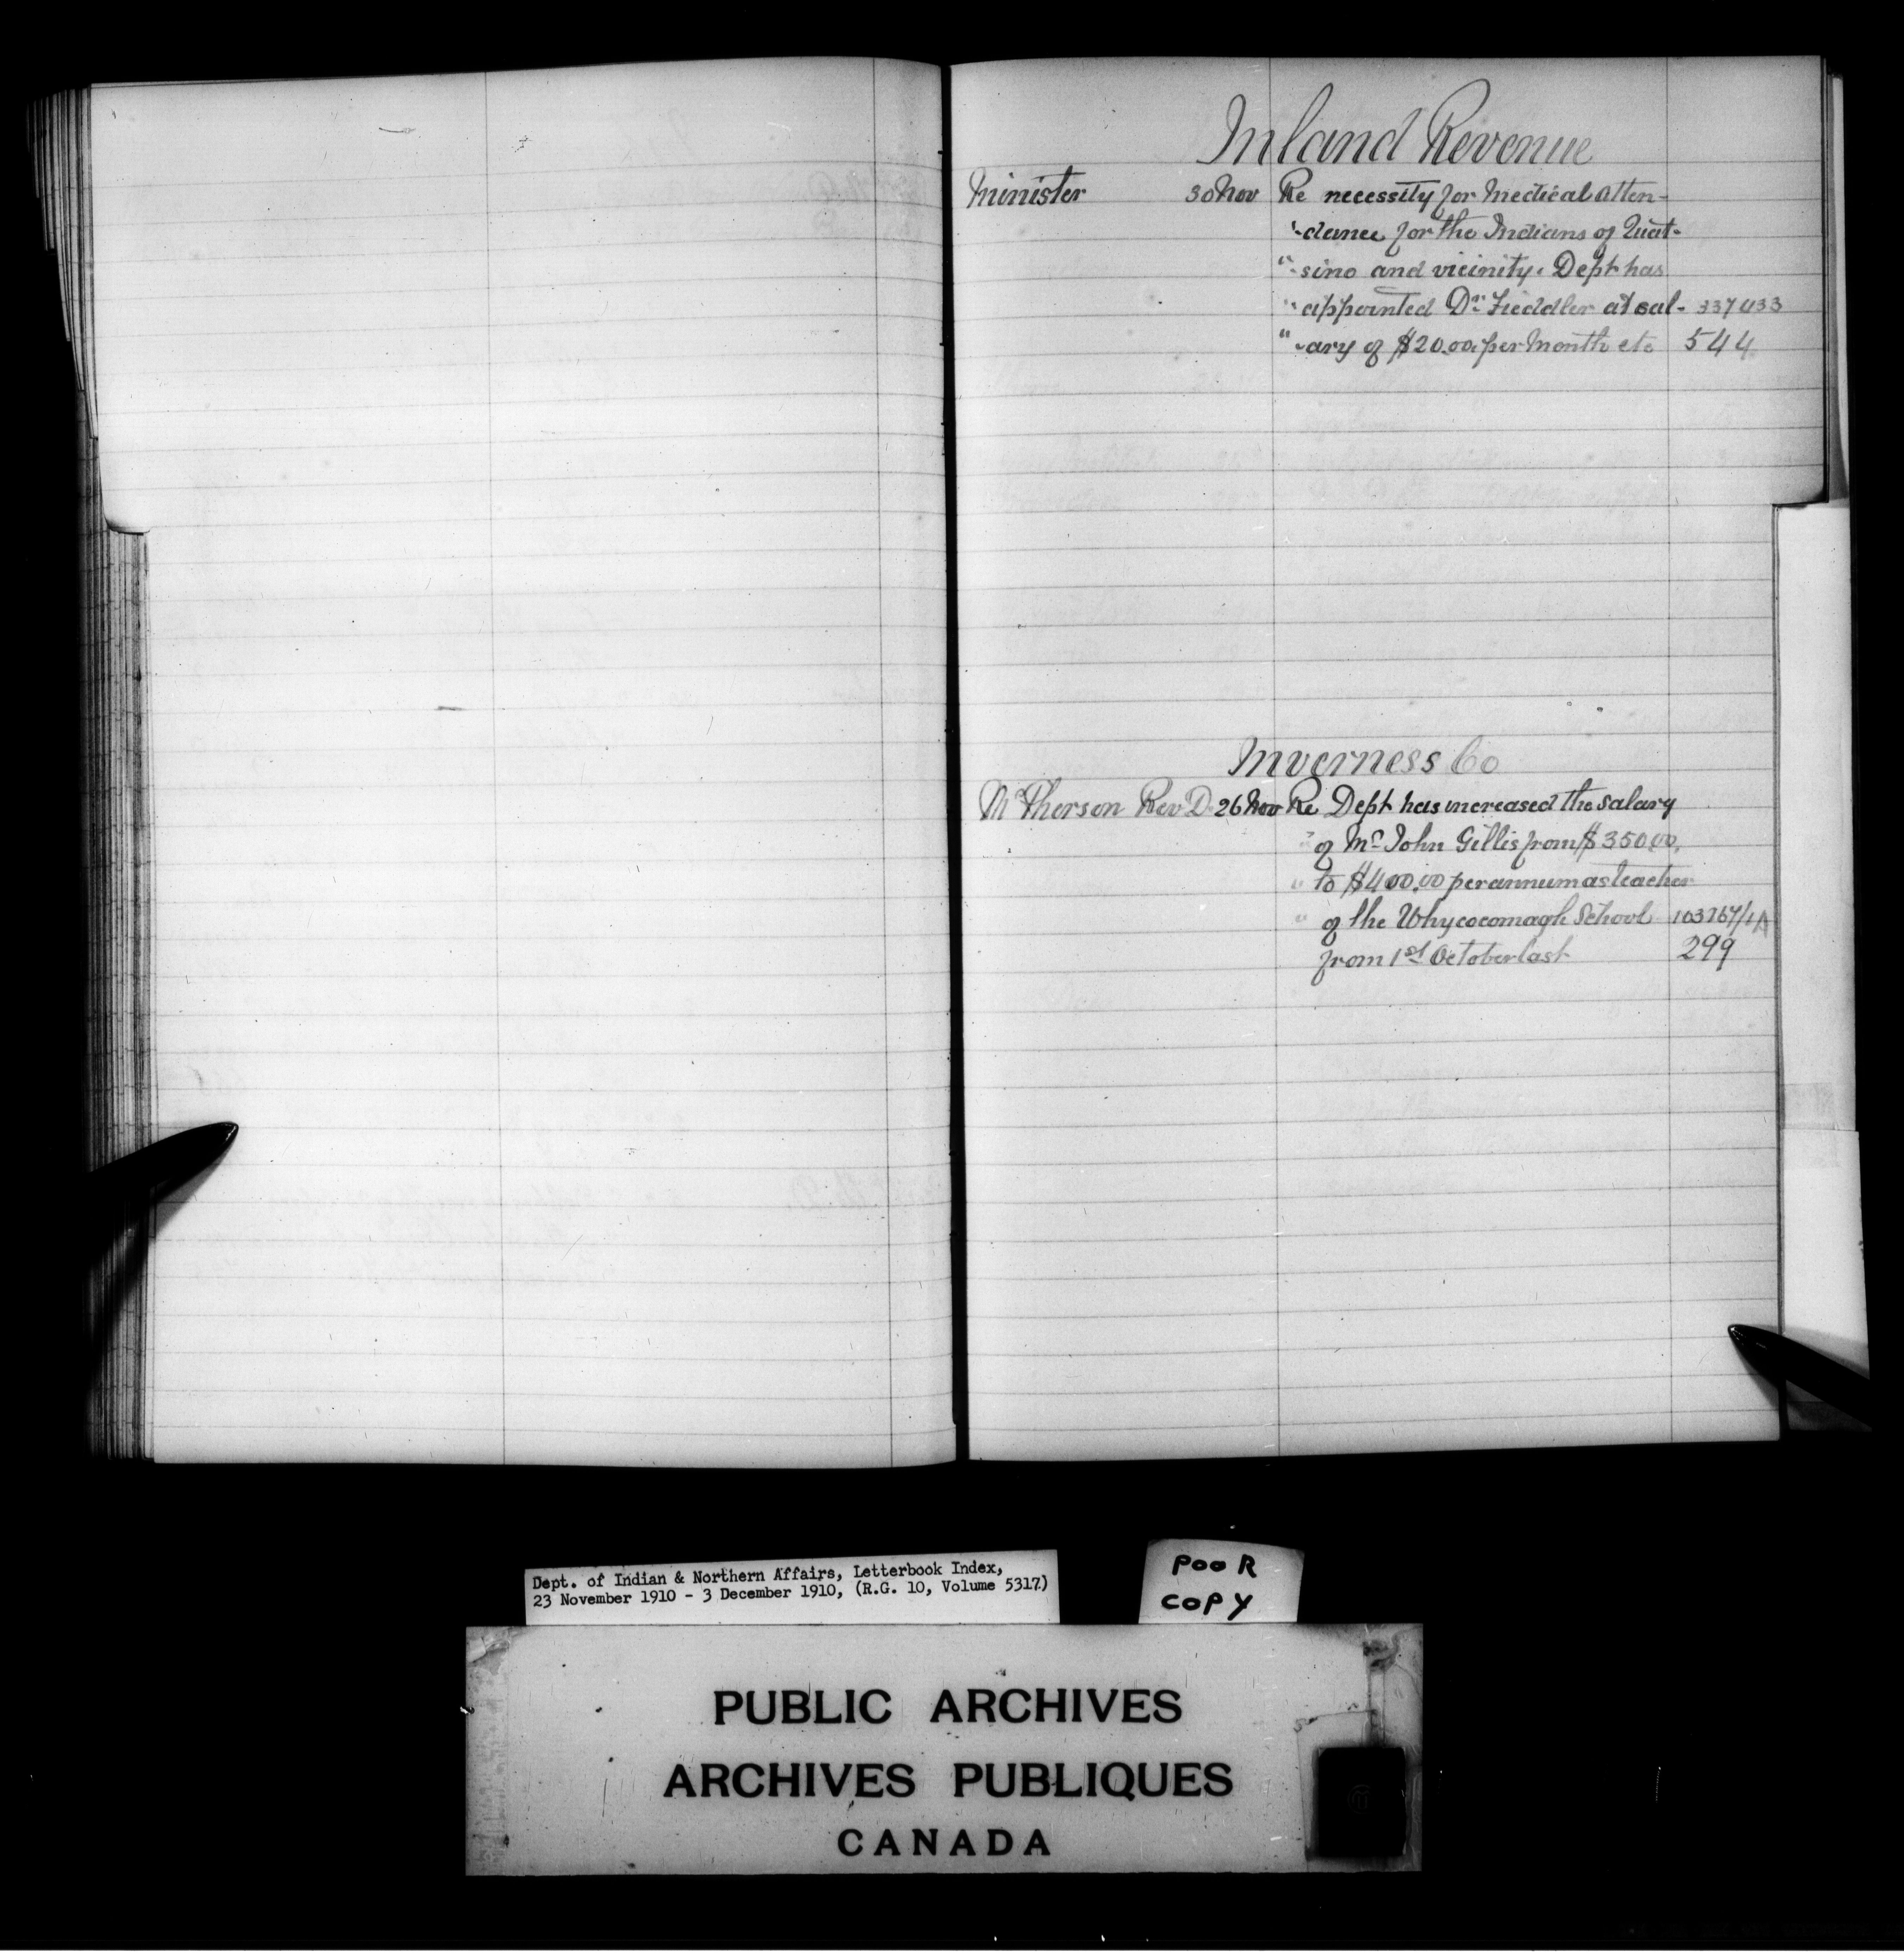 Inland Revenue
Minister 30 Nov Re necessity for Medical atten-
"-dance for the Indians of Quat-
"-sino and vicinity. Dept has
" appointed Dr. Fieddler at sal- 337033
"-ary of $20.00 per Month etc 544
Inverness Co
McPherson Rev D. 26 Nov Re Dept has increased the salary
" of Mr John Gillis from $350.00,
" to $400.00 per annum as teacher
" of the Whycocomagh School 103267/1A
from 1st October last 299
Dept. of Indian & Northern Affairs, Letterbook Index,
23 November 1910 - 3 December 1910, (R.G. 10, Volume 5317.)
POOR
COPY
PUBLIC ARCHIVES
ARCHIVES PUBLIQUES
CANADA